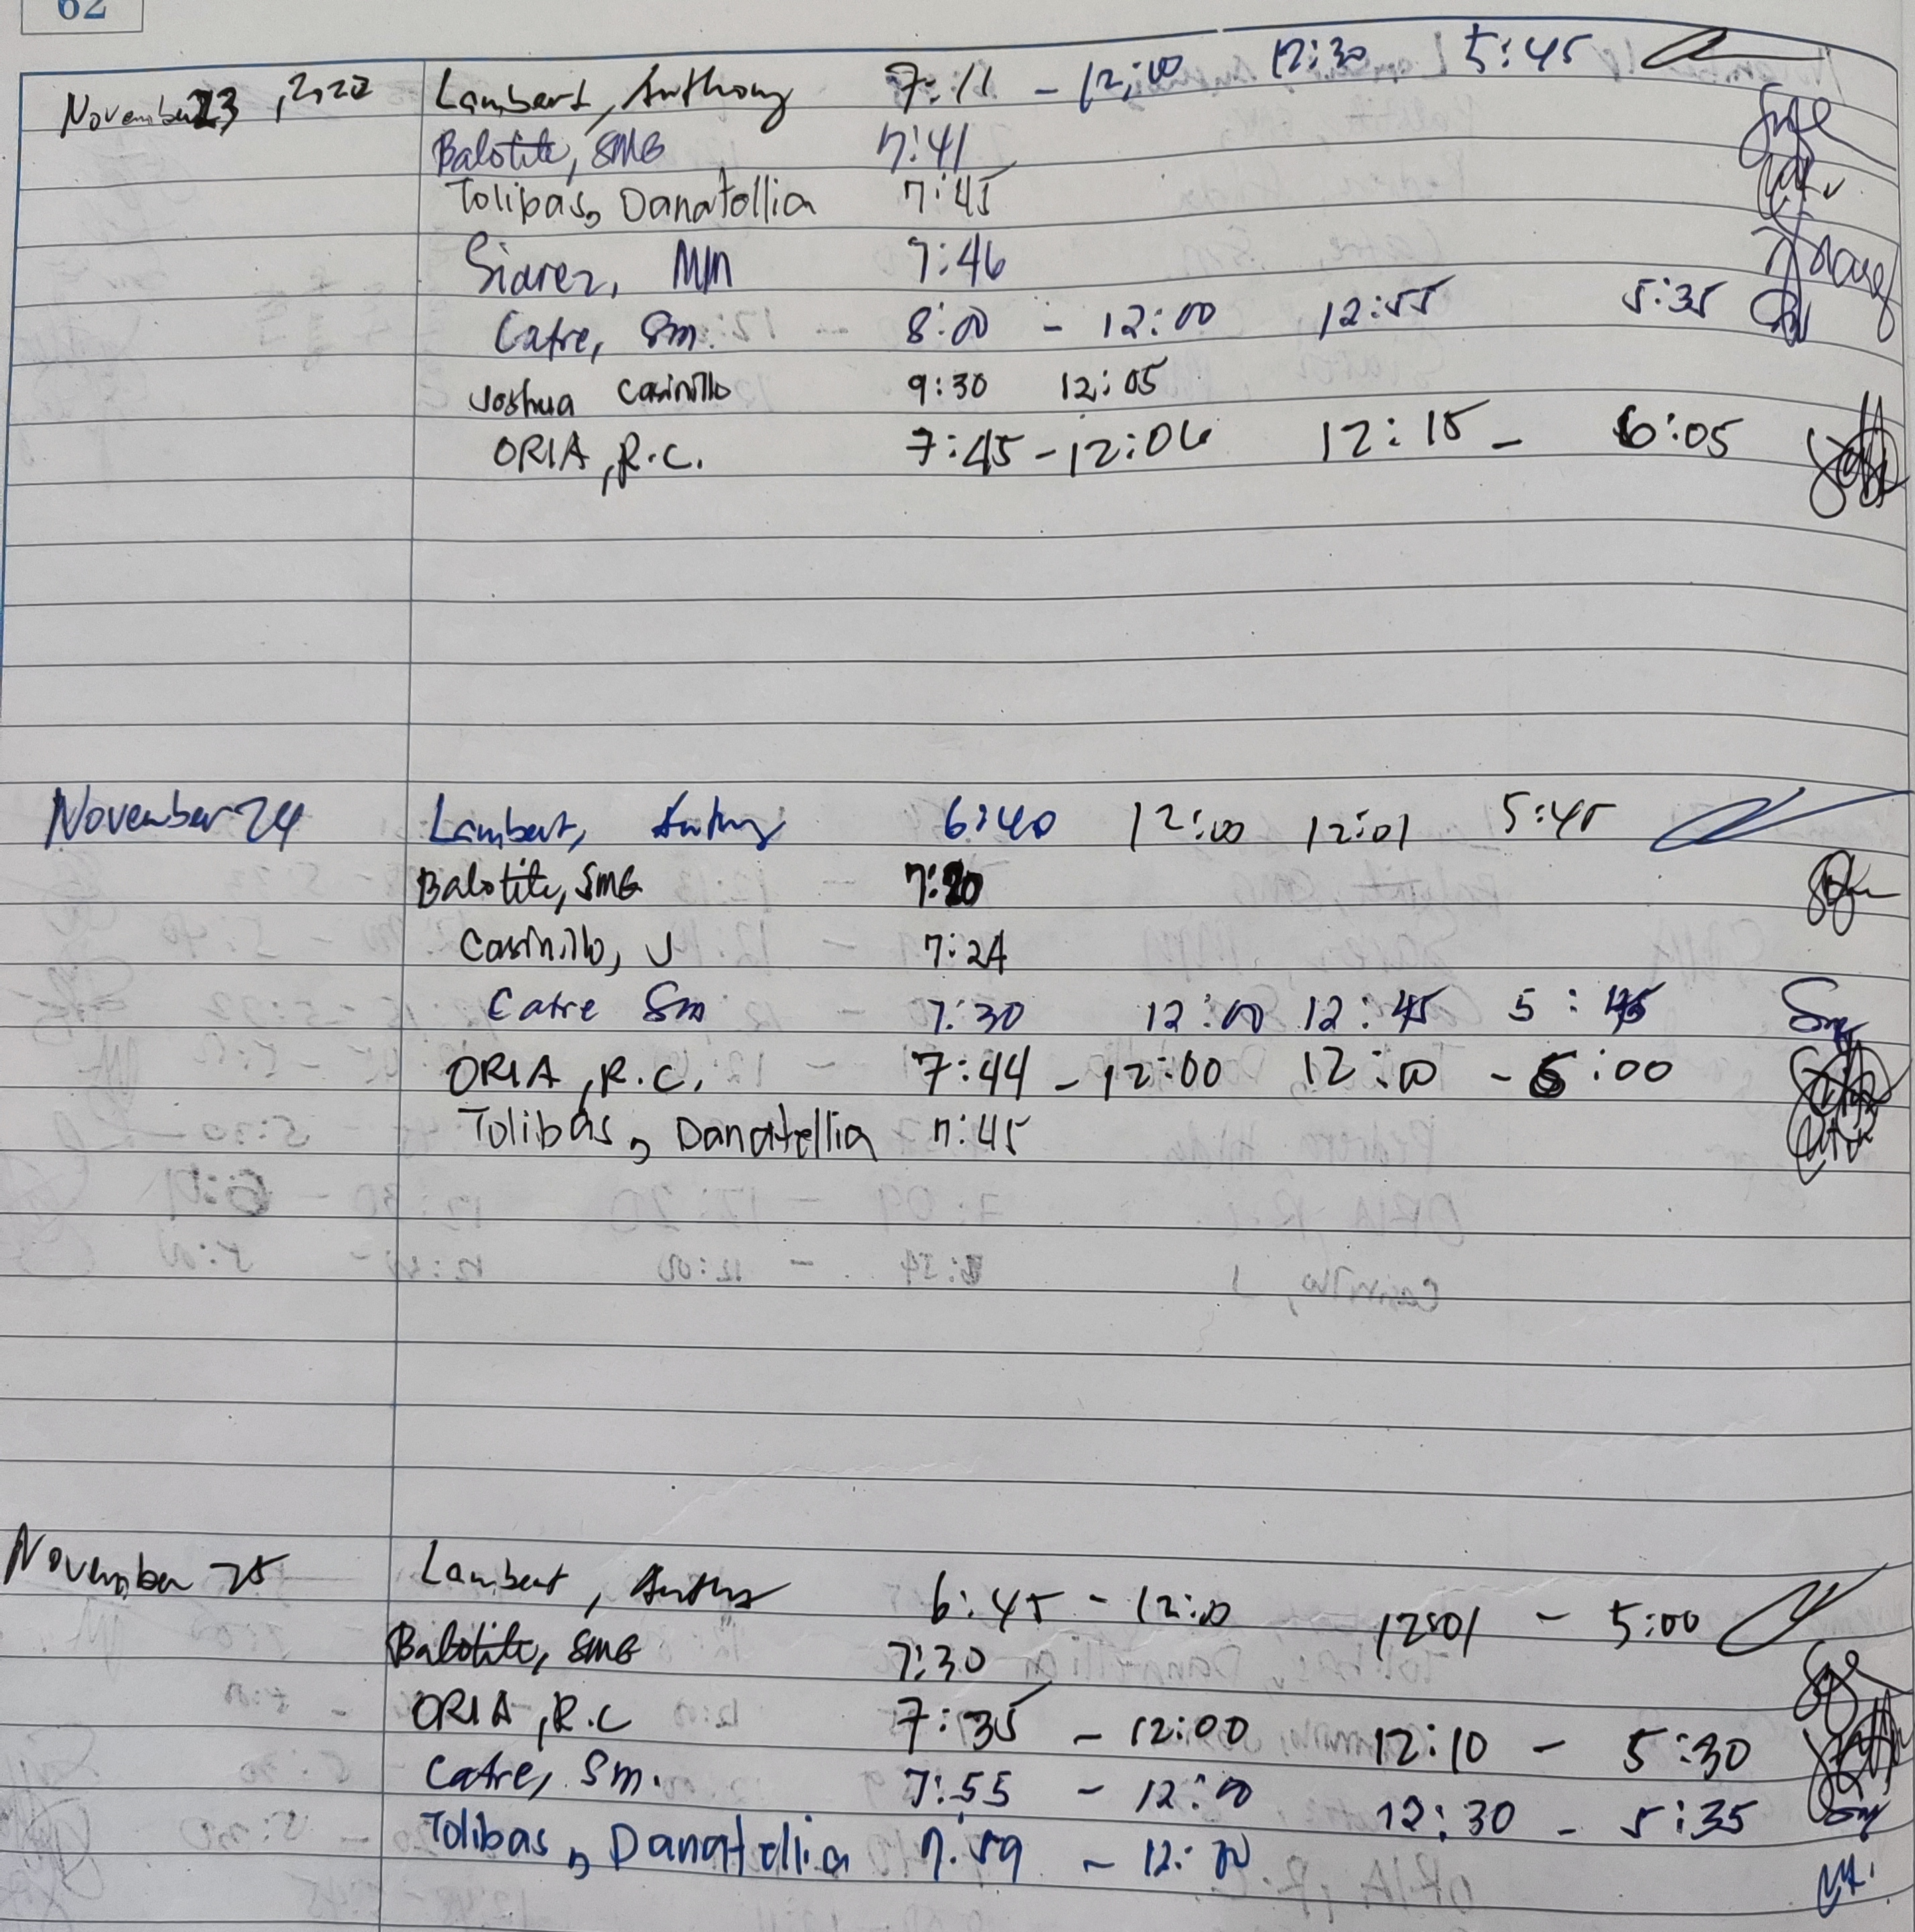 62
November 23, 2022 Lambert, Anthony 7:11 - 12:00 12:30 5:45
Balotite, SMG 7:41
Tolibas, Danatellia 7:45
Siarez, MM 7:46
Catre, Sm. 8:00 - 12:00 12:55 5:35
Joshua Casinillo 9:30 12:05
ORIA, R.C. 7:45 - 12:06 12:15 - 6:05
November 24 Lambert, Anthony 6:40 12:00 12:01 5:45
Balotite, SMG 7:20
Casinillo, J 7:24
Catre Sm 7:30 12:00 12:45 5:45
ORIA, R.C. 7:44 - 12:00 12:00 - 5:00
Tolibas, Danatellia 7:45
November 25 Lambert, Anthony 6:45 - 12:00 1201 - 5:00
Balotite, SMG 7:30
ORIA, R.C 7:35 - 12:00 12:10 - 5:30
Catre, Sm. 7:55 - 12:00 12:30 - 5:35
Tolibas, Danatellia 7:59 - 12:00